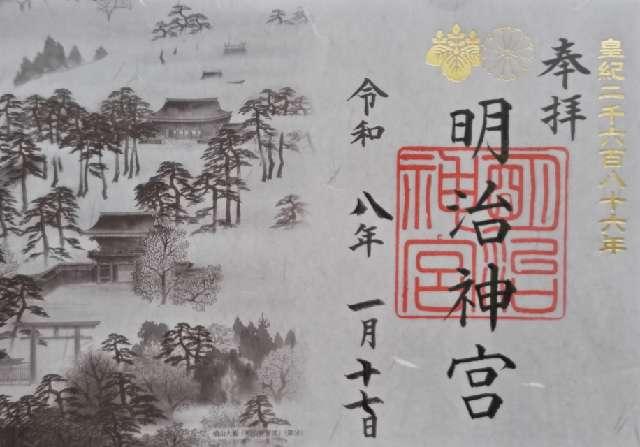 皇紀二千六百八十六年
奉拝
明治神宮
明治神宮
令和 八年 一月 十七日